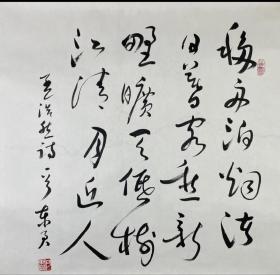 移舟泊烟渚
日暮客愁新
野曠天低树
江清月近人
孟浩然诗一首